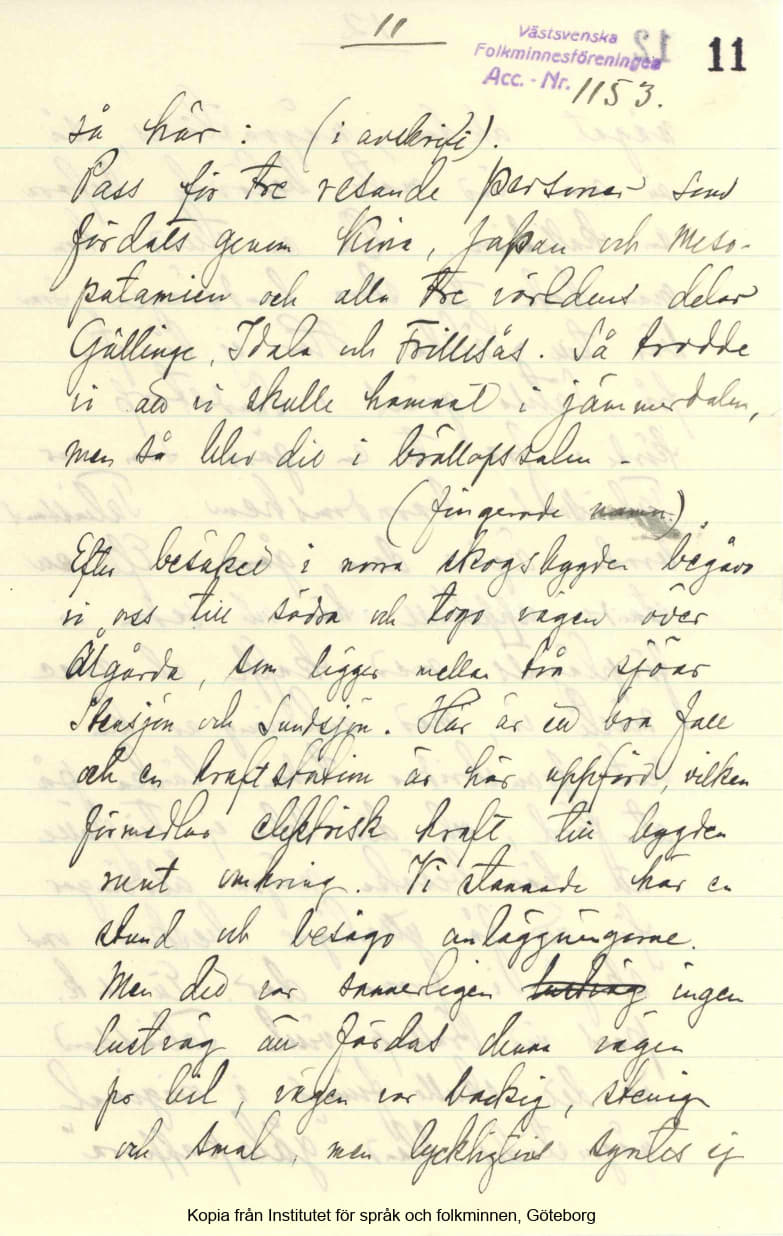 11
Västsvenska
Folkminnesföreningen
Acc. - Nr. 1153.
11
så här: (i avskrift).
Pass för tre resande personer som
färdats genom Kina, Japan och Meso-
patamien och alla tre världens delar
Gällinge, Idala och Frillesås. Så trodde
vi att vi skulle hamnat i jämmerdalen,
men så blev det i bröllopssalen -
(fingerade namn.)
Efter besöket i norra skogsbygden begåvo
vi oss till södra och togo vägen över
Älgårda, som ligger mellan två sjöar
Stensjön och Sundsjön. Här är ett bra fall
och en kraftstation är här uppförd, vilken
förmedlar elektrisk kraft till bygden
runt omkring. Vi stannade här en
stund och besågo anläggningarne.
Men det var sannerligen lustväg ingen
lustväg att färdas denna vägen
pr bil, vägen var backig, stenig
och smal, men lyckligtvis syntes ej
Kopia från Institutet för språk och folkminnen, Göteborg